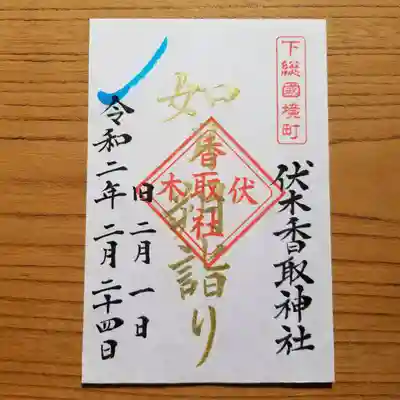 下総國境町
伏木香取神社
如月朔詣り
伏木香取社
旧二月一日
令和二年二月二十四日